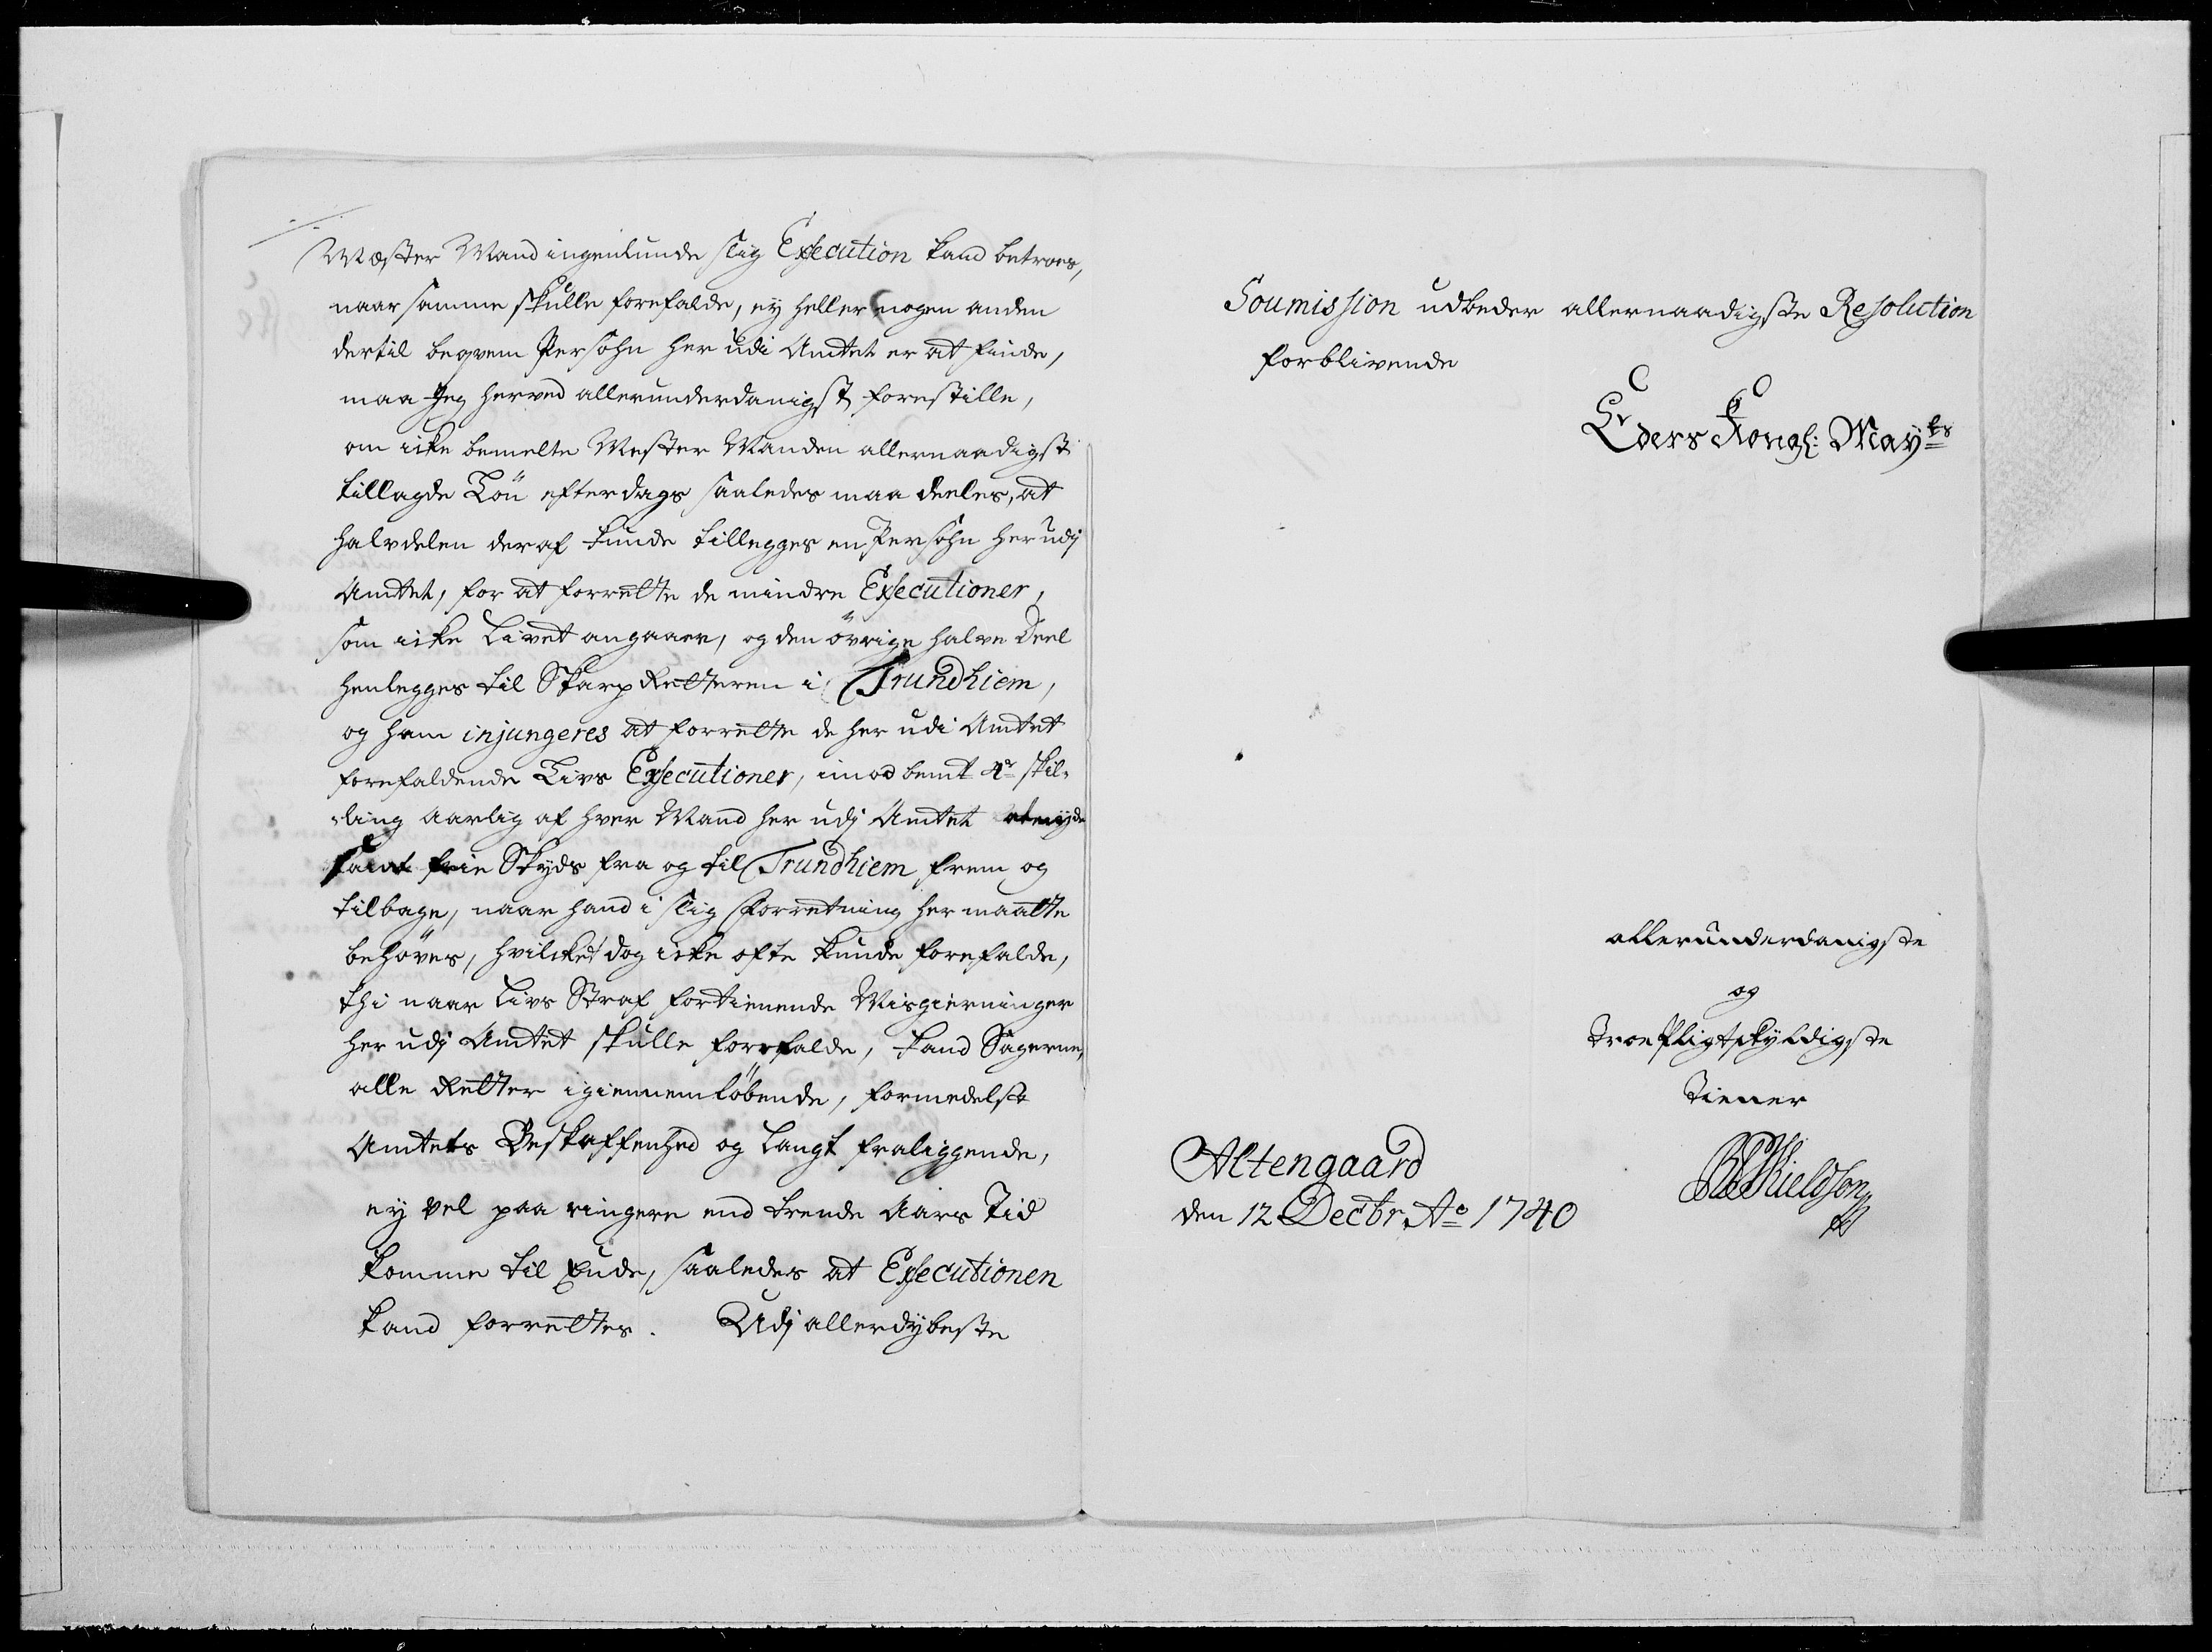 Mæster Mand ingenlunde slig Execution kand betroes,
naar samme skulle forefalde, ey heller nogen anden
dertil beqvem Persohn her udi Amtet er at finde,
maa Jeg herved allerunderdanigst forestille,
om icke bemelte Mester Manden allernaadigst
tillagde Lön efterdags saaledes maa deeles, at
halvdelen deraf kunde tillegges en Persohn her udj
Amtet, for at forrette de mindre Executioner,
som icke Livet angaaer, og den övrige halve Deel
henlegges til Skarp Retteren i Trundhiem,
og ham injungeres at forrette de her udi Amtet
forefaldende Livs Executioner, imod bemt 4re skil-
-ling aarlig af hver Mand her udj Amtet at nÿde
samt frie Skyds fra og til Trundhiem frem og
tilbage, naar hand i slig Forretning her maatte
behöves, hvilcket dog icke ofte kunde forefalde,
thi naar Livs Straf fortienende Misgierninger
her udj Amtet skulle forefalde, kand Sagerne,
alle Retter igiennemlöbende, formedelst
Amtets Beskaffenhed og langt fraliggende,
ey vel paa ringere end trende Aars Tid
komme til Ende, saaledes at Executionen
kand forrettes. Udj allerdybeste
Soumission udbeder allernaadigste Resolution
forblivende
Eders Kongl: Mayts
allerunderdanigste
og
troe Pligtskyldigste
tiener
Altengaard
den 12 Decbr Ao 1740
Kieldson